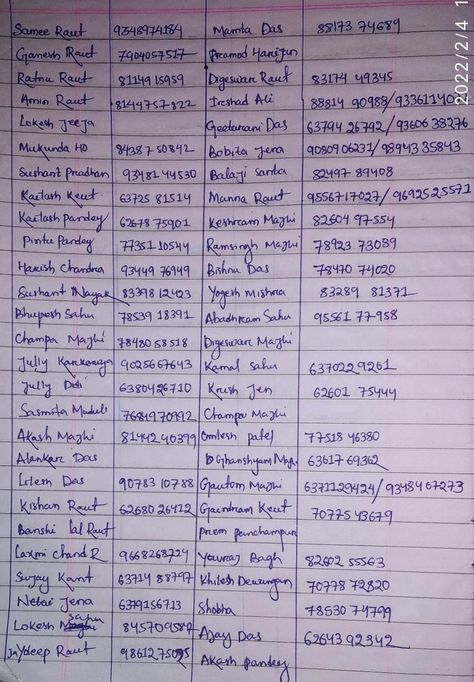 Samee Raut 9348974184 Mamta Das 88173 74689
Ganesh Raut 7904057517 Pramod Harijan
Ratnu Raut 8114915959 Digeswar Raut 83174 49345
Amin Raut 8144757822 Irshad Ali 88814 90988/
Lokesh Jeeja Geetarani Das 63794 26792/93606 38276
Mukunda HD 84387 50842 Bobita Jena 9080906231/98943 35843
Sushant Pradhan 93481 44530 Balaji Santa 82497 89408
Kailash Keut 63725 81514 Manna Raut 9556717027/9692525571
Kailash Pandey 62678 75901 Keshram Majhi 82604 97554
Pintu Pandey 77351 10544 Ramsingh Majhi 78923 73039
Harish Chandra 93449 76949 Bishnu Das 78470 74020
Sushant Nayak 83398 12423 Yogesh Mishra 83289 81371
Bhupesh Sahu 78539 18391 Abadhram Sahu 95561 77958
Champa Majhi 78480 58518 Digeswar Majhi
Jully 9025667643 Kamal Sahu 6370229261
Jully Devi 6380426710 Krush Jen 62601 75444
Sasmita Maduli 7684970992 Champa Majhi
Akash Majhi 81442 40399 Omlesh Patel 77518 46380
Alankar Das Ghanshyam 63617 69362
Litesh Das 90783 10788 Gautom Majhi 6371129424/9348407273
Kishan Raut 62680 26412 Gaindram Keut 70775 43679
Banshi lal Raut Prem panchampur
Laxmi Chand R 9668268724 Yovraj Bagh 82602 55563
Sujay Kant 63714 88797 Khilesh Dewangan 70778 72820
Netai Jena 6379156713 Shobha 78530 74799
Lokesh Sahu 8457095 Ajay Das 62643 92342
Jaydeep Raut 98612 75095 Akash pandey
2022/2/4 1